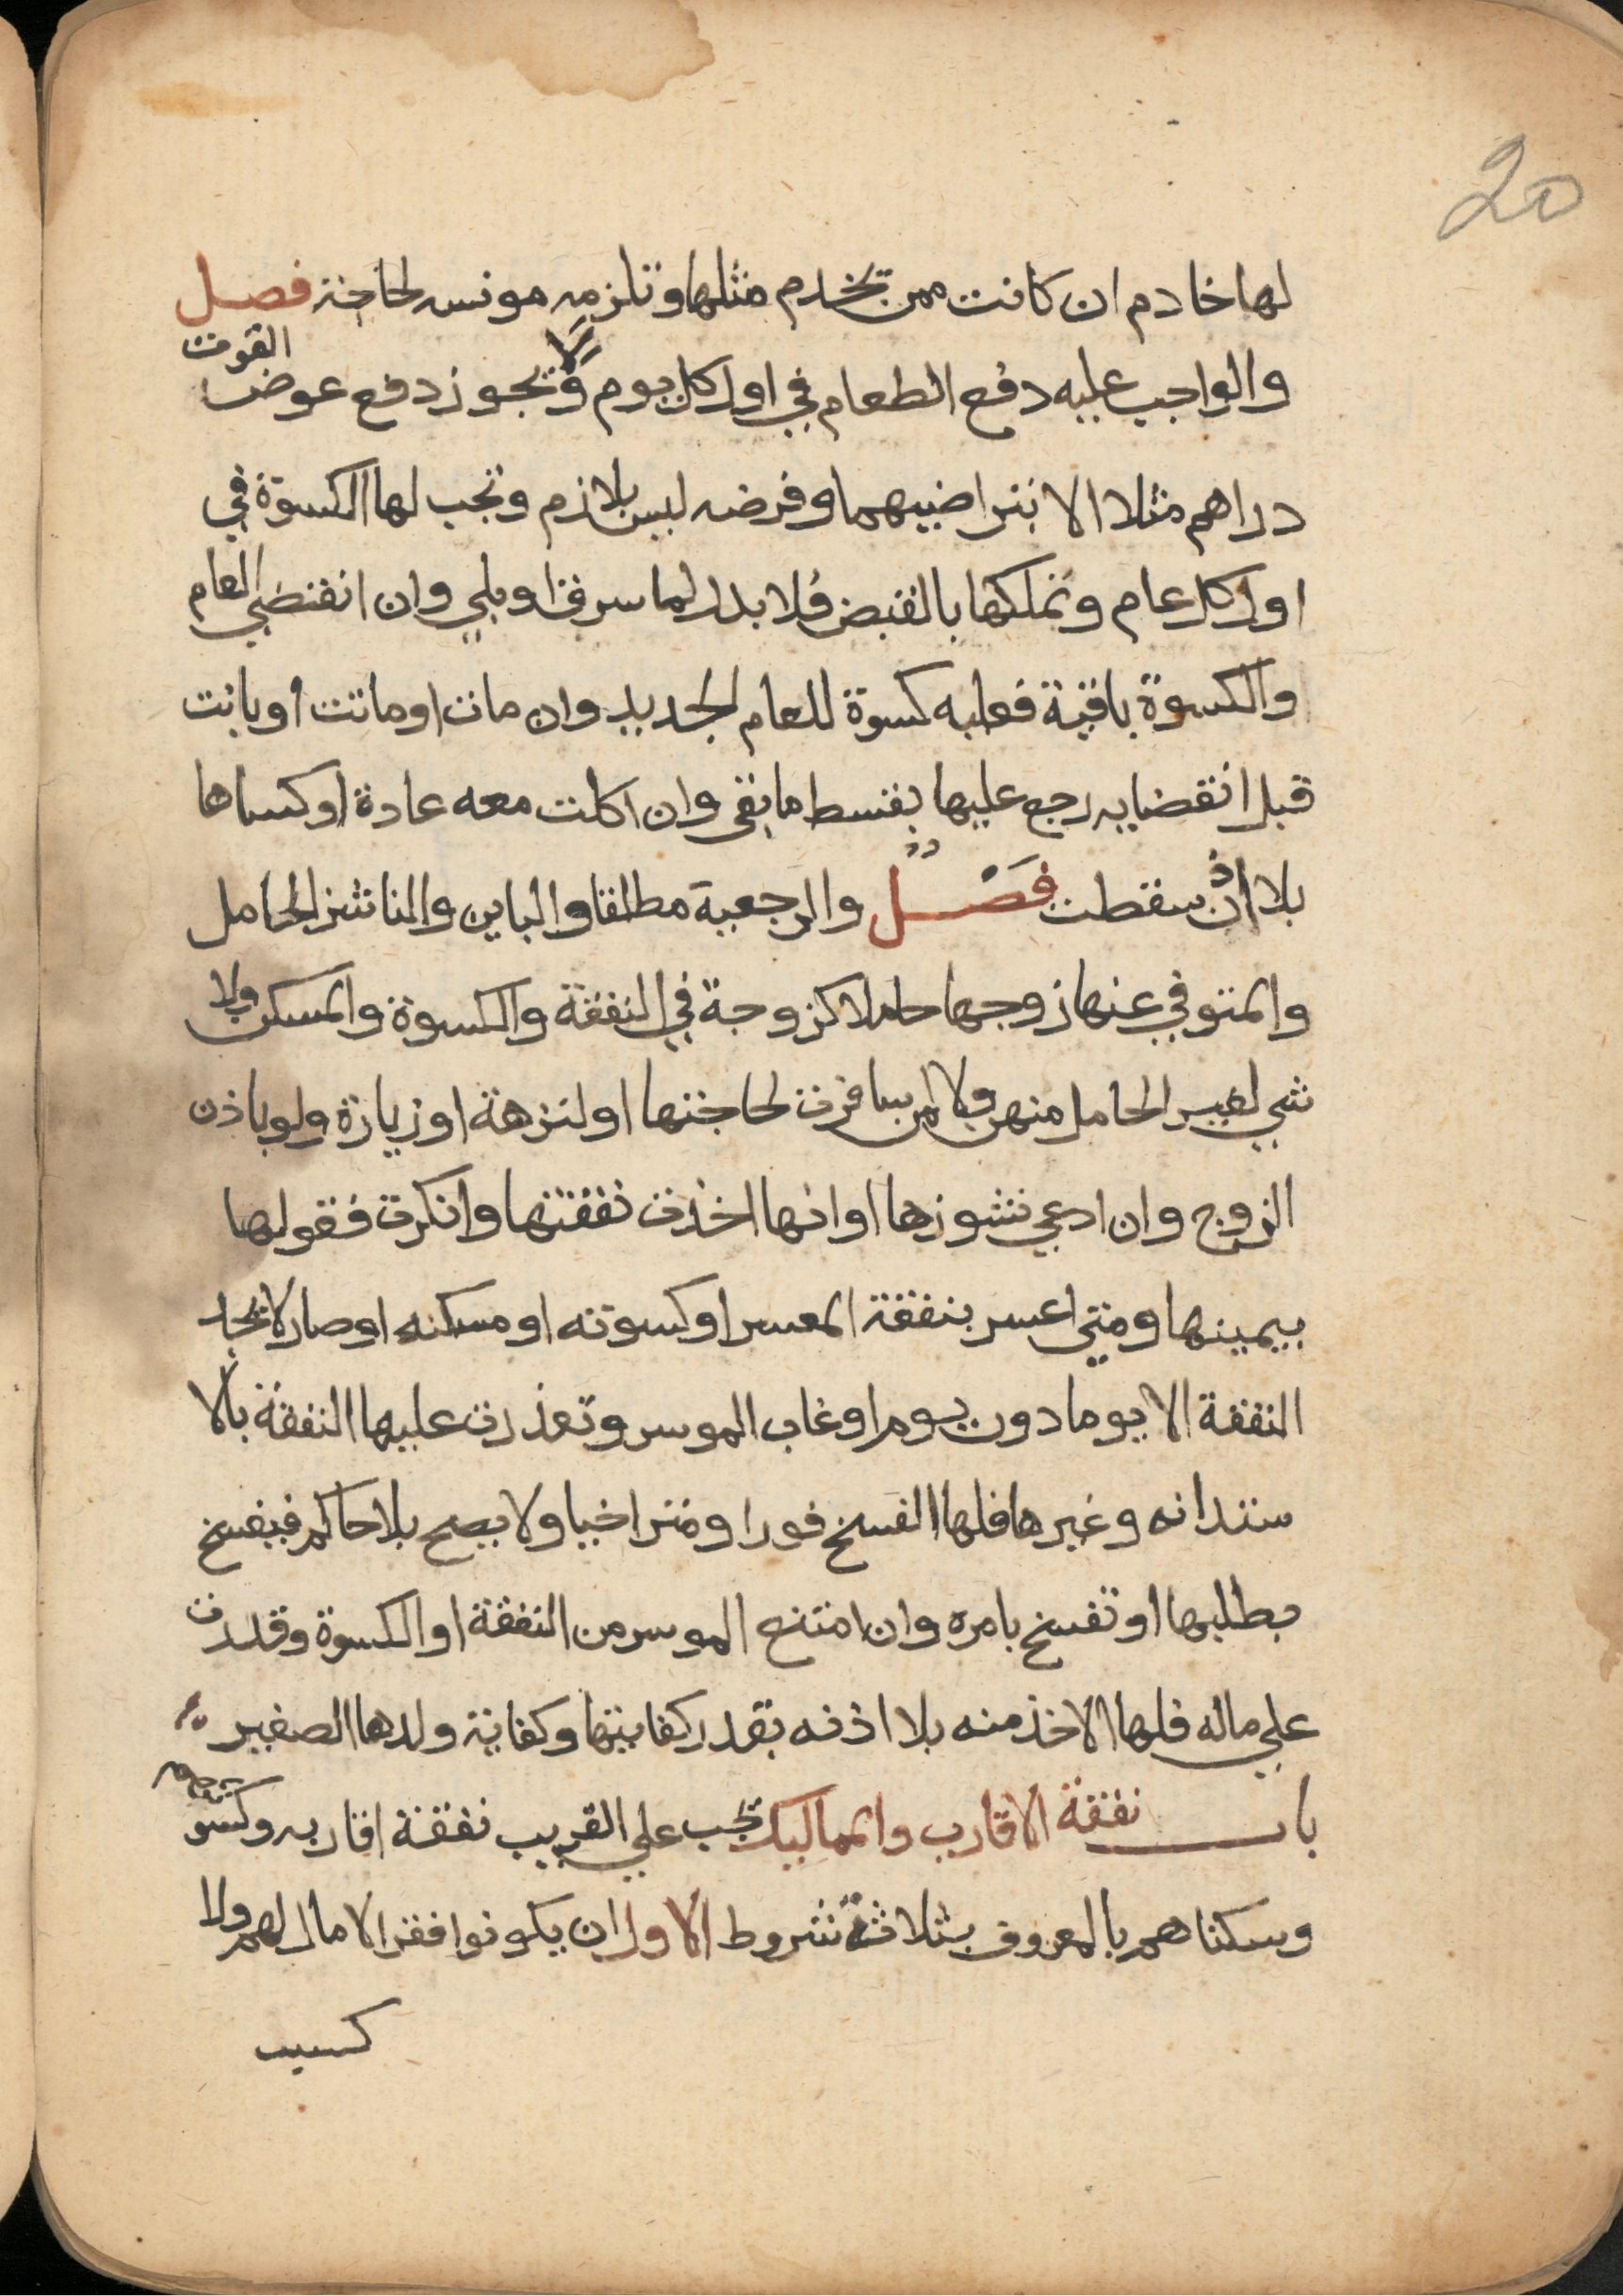 20
لها خادم ان كانت ممن تخدم مثلها وتلزمه مونسه لحاجة فصل
والواجب عليه دفع الطعام في اول كل يوم ولا يجوز دفع عوض القوت
دراهم مثلا الا بتراضيهما وفرضه ليس بلازم وتجب لها الكسوة في
اول كل عام وتملكها بالقبض فلا بدل لما سرق او بلي وان انقضي العام
والكسوة باقية فعليه كسوة للعام الجديد وان مات او ماتت او بانت
قبل انقضايه رجع عليها بقسط ما بقى وان اكلت معه عادة او كساها
بلا اذن سقطت فصل والرجعية مطلقا والباين والناشز الحامل
والمتوفي عنها زوجها حاملا كزوجة في النفقة والكسوة والمسكن ولا
شي لغير الحامل منهن ولا لمن سافرت لحاجتها او لنزهة او زيارة ولو باذن
الزوج وان ادعي نشوزها او انها اخذت نفقتها وانكرت فقولها
بيمينها ومتي اعسر بنفقة المعسر او كسوته او مسكنه او صار لا يجد
النفقة الا يوما دون يوم او غاب الموسر وتعذرت عليها النفقة بالا
ستدانه وغيرها فلها الفسخ فورا ومتراخيا ولا يصح بلا حاكم فيفسخ
بطلبها او تفسخ بامره وان امتنع الموسر من النفقة او الكسوة وقدرت
علي ماله فلها الاخذ منه بلا اذنه بقدر كفايتها وكفاية ولدها الصغير
باب نفقة الاقارب والمماليك تجب علي القريب نفقة اقاربه وكسوتهم
وسكناهم بالمعروف بثلاثة شروط الاول ان يكونوا فقرا لا مال لهم ولا
كسب